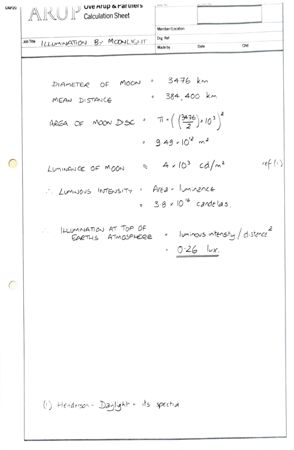 ARUP
Ove Arup & Partners
Calculation Sheet
Member/Location
Job Title ILLUMINATION BY MOONLIGHT
Drg. Ref.
Made by Date Chd
DIAMETER OF MOON = 3476 km
MEAN DISTANCE = 384,400 km
AREA OF MOON DISC = π × ((3476/2) × 10³)²
= 9.49 × 10¹² m²
LUMINANCE OF MOON = 4 × 10³ cd/m² ref (1)
∴ LUMINOUS INTENSITY = Area × luminance
= 3.8 × 10¹⁶ candelas.
∴ ILLUMINATION AT TOP OF
EARTHS ATMOSPHERE = luminous intensity / distance²
= 0.26 lux.
(1) Henderson - Daylight + its spectra